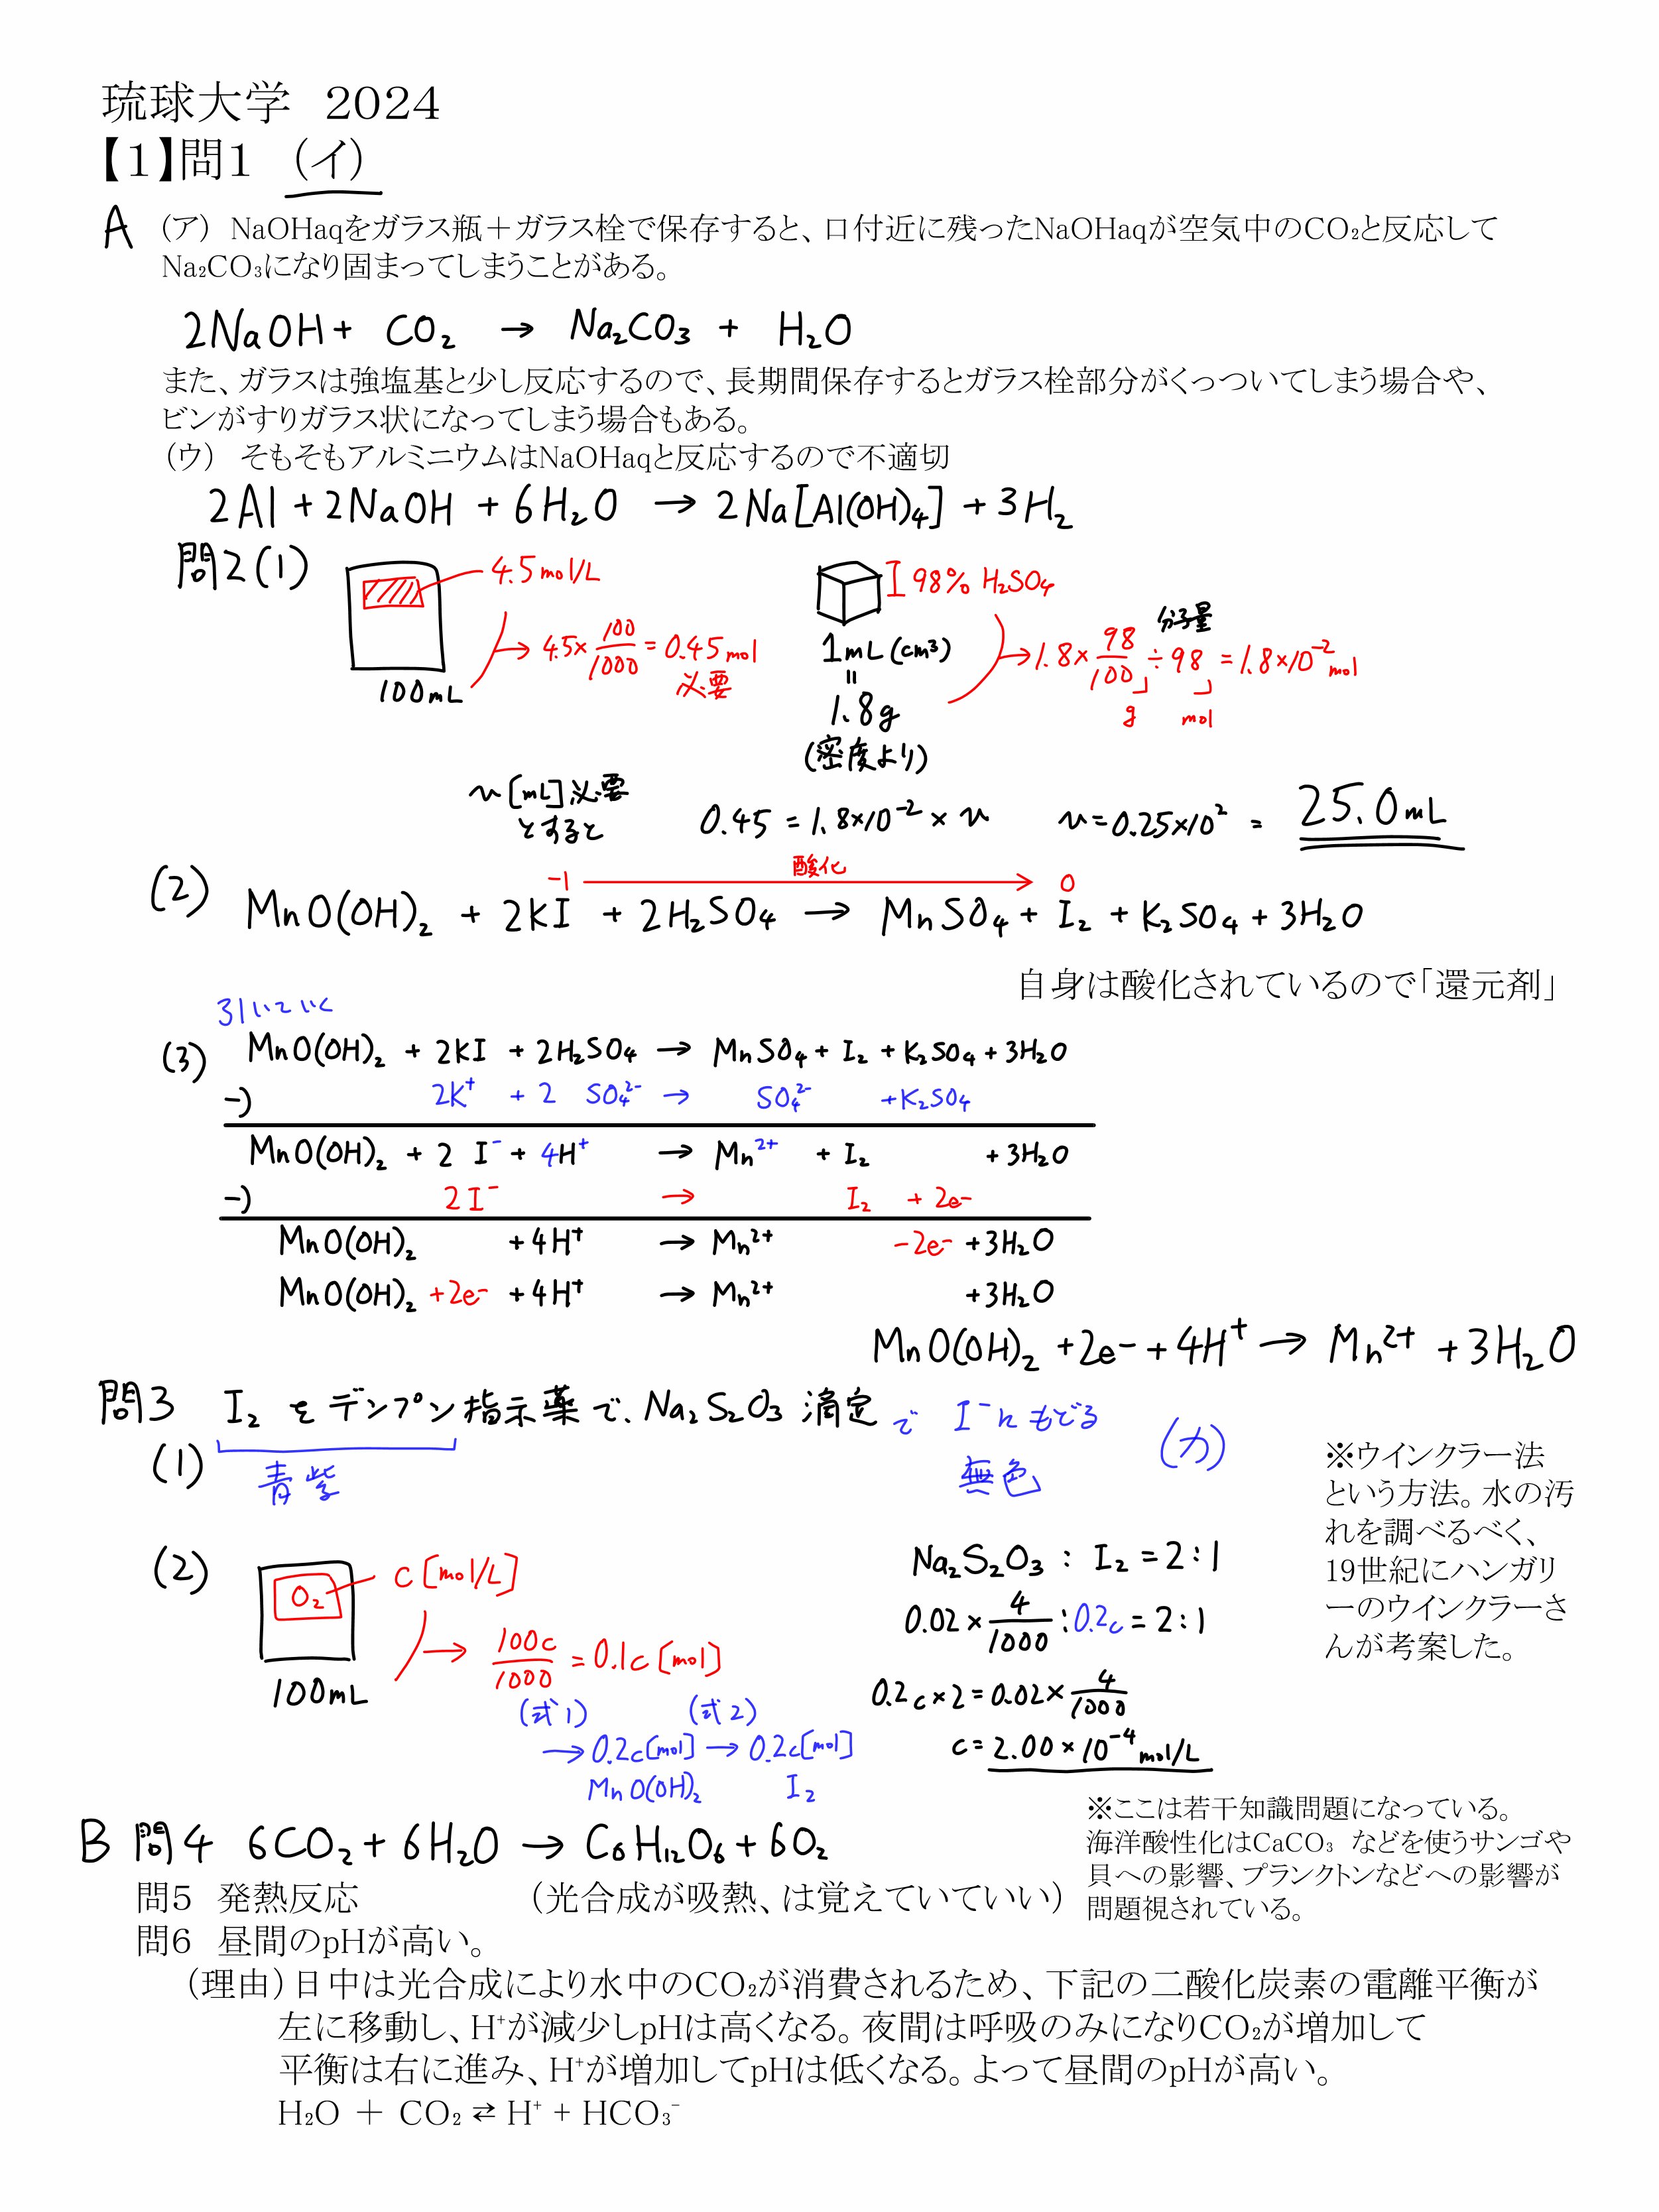 琉球大学　2024
【1】問1　(イ)
A (ア) NaOHaqをガラス瓶＋ガラス栓で保存すると、口付近に残ったNaOHaqが空気中のCO₂と反応して
Na₂CO₃になり固まってしまうことがある。
2NaOH + CO₂ → Na₂CO₃ + H₂O
また、ガラスは強塩基と少し反応するので、長期間保存するとガラス栓部分がくっついてしまう場合や、
ビンがすりガラス状になってしまう場合もある。
(ウ)　そもそもアルミニウムはNaOHaqと反応するので不適切
2Al + 2NaOH + 6H₂O → 2Na[Al(OH)₄] + 3H₂
問2(1)
4.5mol/L
→ 4.5×100/1000 = 0.45mol
必要
100mL
98% H₂SO₄
1mL(cm³)
=
1.8g
(密度より)
分子量
→1.8×98/100÷98 = 1.8×10⁻²mol
g mol
v[mL]必要
とすると
0.45 = 1.8×10⁻² × v v=0.25×10² = 25.0mL
(2) -1 酸化 0
MnO(OH)₂ + 2KI + 2H₂SO₄ → MnSO₄ + I₂ + K₂SO₄ + 3H₂O
自身は酸化されているので「還元剤」
引いていく
(3) MnO(OH)₂ + 2KI + 2H₂SO₄ → MnSO₄ + I₂ + K₂SO₄ + 3H₂O
-) 2K⁺ + 2 SO₄²⁻ → SO₄²⁻ +K₂SO₄
MnO(OH)₂ + 2 I⁻ + 4H⁺ → Mn²⁺ + I₂ + 3H₂O
-) 2I⁻ → I₂ + 2e⁻
MnO(OH)₂ +4H⁺ → Mn²⁺ -2e⁻ +3H₂O
MnO(OH)₂ +2e⁻ +4H⁺ → Mn²⁺ +3H₂O
MnO(OH)₂ +2e⁻ +4H⁺ → Mn²⁺ +3H₂O
問3 I₂ をデンプン指示薬で、Na₂S₂O₃ 滴定で I⁻にもどる
(1) 青紫 無色 (カ)
※ウインクラー法
という方法。水の汚
れを調べるべく、
19世紀にハンガリ
ーのウインクラーさ
んが考案した。
(2) O₂ c[mol/L]
→ 100c/1000 = 0.1c[mol]
100mL
(式1) (式2)
→0.2c[mol] → 0.2c[mol]
MnO(OH)₂ I₂
Na₂S₂O₃ : I₂ = 2:1
0.02×4/1000 : 0.2c = 2:1
0.2c×2 = 0.02×4/1000
c = 2.00×10⁻⁴mol/L
B 問4 6CO₂ + 6H₂O → C₆H₁₂O₆ + 6O₂
※ここは若干知識問題になっている。
海洋酸性化はCaCO₃ などを使うサンゴや
貝への影響、プランクトンなどへの影響が
問題視されている。
問5　発熱反応　（光合成が吸熱、は覚えていていい）
問6　昼間のpHが高い。
(理由)日中は光合成により水中のCO₂が消費されるため、下記の二酸化炭素の電離平衡が
左に移動し、H⁺が減少しpHは高くなる。夜間は呼吸のみになりCO₂が増加して
平衡は右に進み、H⁺が増加してpHは低くなる。よって昼間のpHが高い。
H₂O ＋ CO₂ ⇄ H⁺ + HCO₃⁻